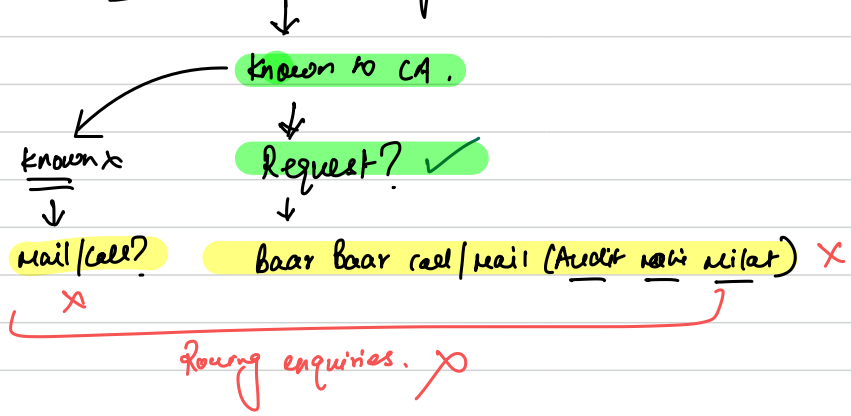 Known to CA.
Known x
Request? ✓
Mail/Call?
Baar Baar call/Mail (Audit nahi Milat) x
x
Roving enquiries. x